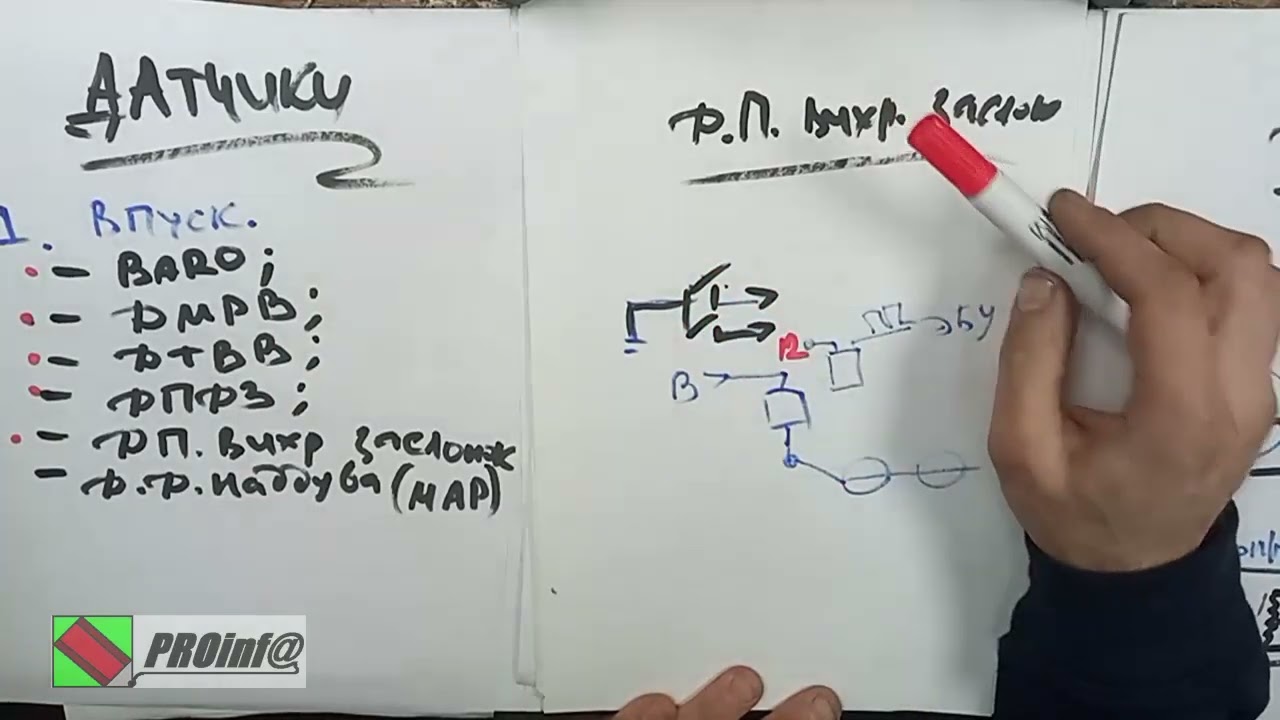 ДАТЧИКИ
1. ВПУСК.
- BARO;
- ДМРВ;
- ДТВВ;
- ДПДЗ;
- ДП. Вихр заслонок
- Д.Д. наддува (MAP)
Д.П. Вихр. заслон
R
БУ
В
PROinf@